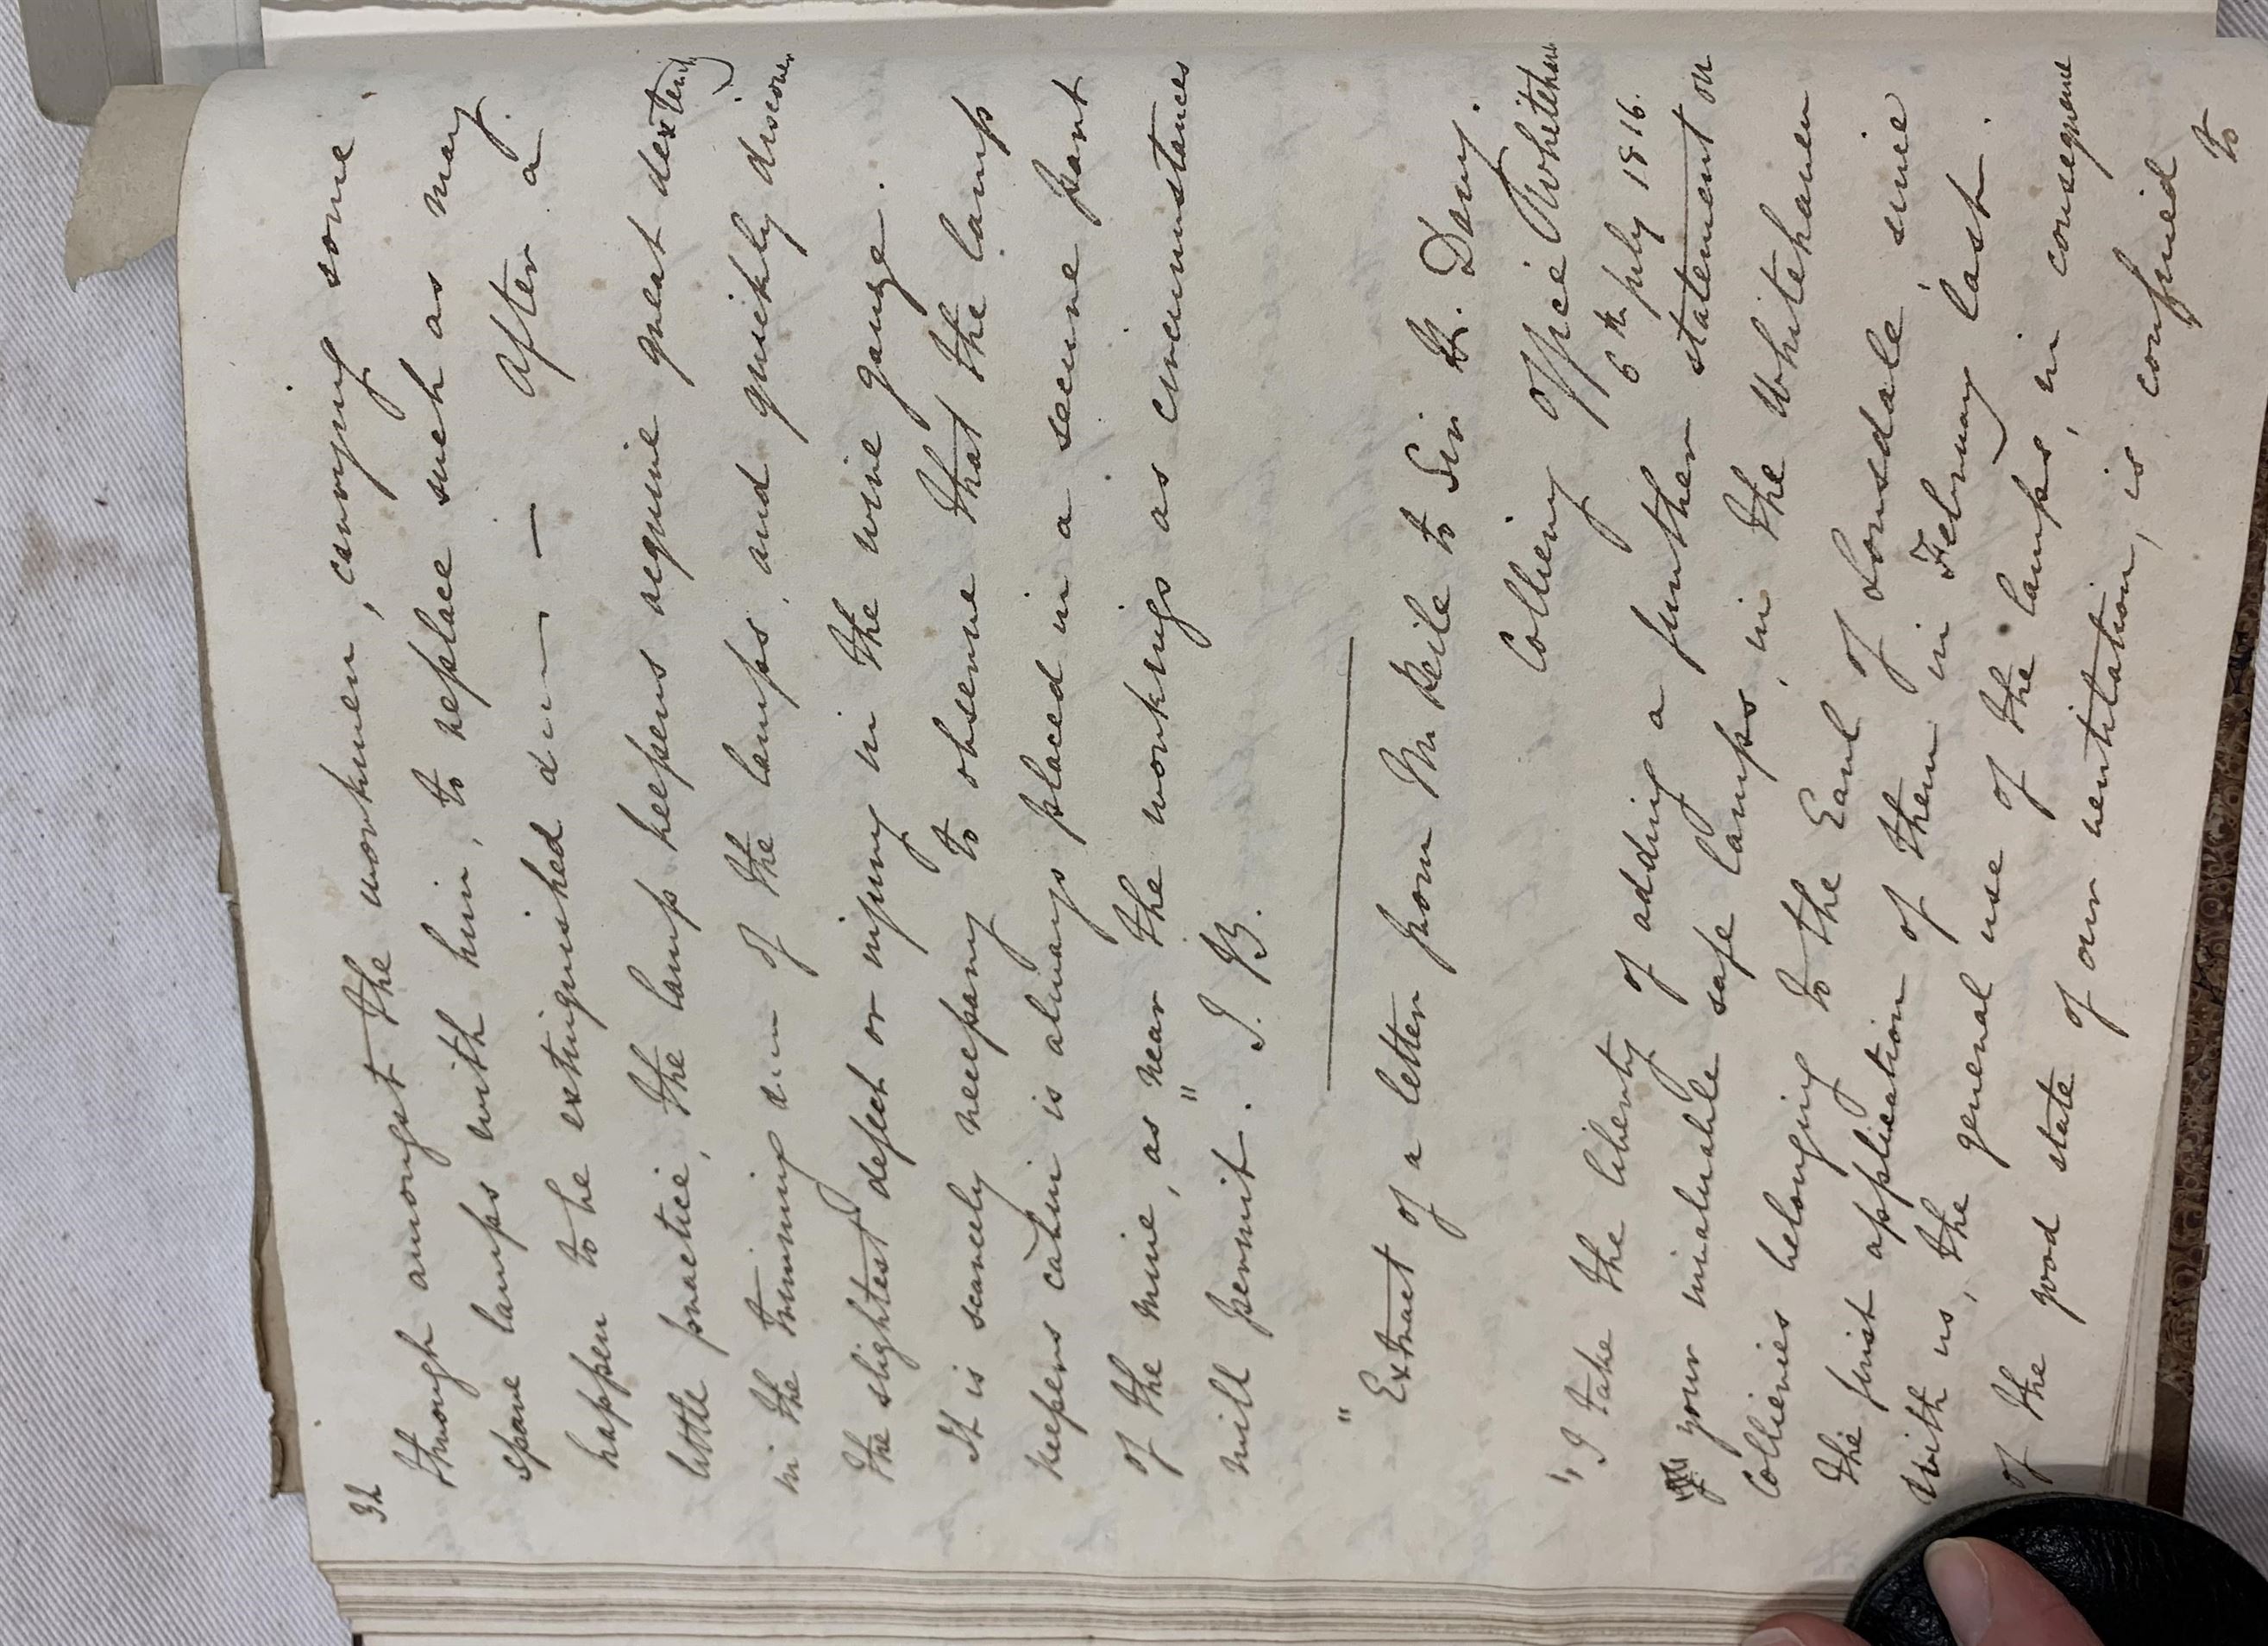 32
through amongst the workmen, carrying some
spare lamps with him, to replace such as may
happen to be extinguished &c — — After a
little practice, the lamp keepers acquire great dexterity
in the trimming &c of the lamps, and quickly discover
the slightest defect or injury in the wire gauze.
It is scarcely necessary to observe that the lamp
keepers cabin is always placed in a secure part
of the mine, as near the workings as circumstances
will permit." J. B.
"Extract of a letter from Mr Peile to Sir H. Davy.
Colliery Office Whitehaven
6th July 1816.
"I take the liberty of adding a further statement on
of your invaluable safe lamps, in the Whitehaven
Collieries belonging to the Earl of Lonsdale, since
the first application of them in February last.
With us, the general use of the lamps, in consequence
of the good state of our ventilation, is confined
to